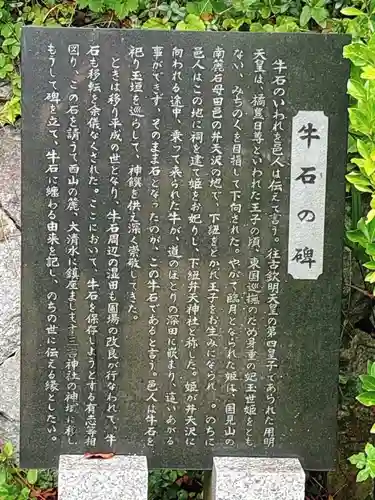 牛石の碑
牛石のいわれを邑人は伝えて言う。往古欽明天皇の第四皇子であられた用明
天皇は、橘豊日尊といわれた王子の頃、東国巡撫のため身重の妃玉世姫をとも
ない、みちのくを目指して下向された。やがて臨月となられた姫は、国見山の
南麓石母田邑の弁天沢の地で、下紐をとかれ王子をお生みになられ 。のちに
邑人はこの地に祠を建て姫をお祀りし、下紐弁天神社と称した。姫が弁天沢に
向われる途中、乗って来られた牛が、道のほとりの深田に嵌まり、這いあがる
事ができず、そのまま石となったのが、この牛石であると言う。邑人は牛石を
祀り玉垣を巡らして、神饌を供え深く崇敬してきた。
ときは移り平成の世となり、牛石周辺の湿田も圃場の改良が行なわれて、牛
石も移転を余儀なくされた。ここにおいて、牛石を保存しようとする有志等相
図り、この石を請うて西山の麓、大清水に鎮座まします三吉神社の神域に移し
もうして碑を立て、牛石に纏わる由来を記し、のちの世に伝える縁としたい。